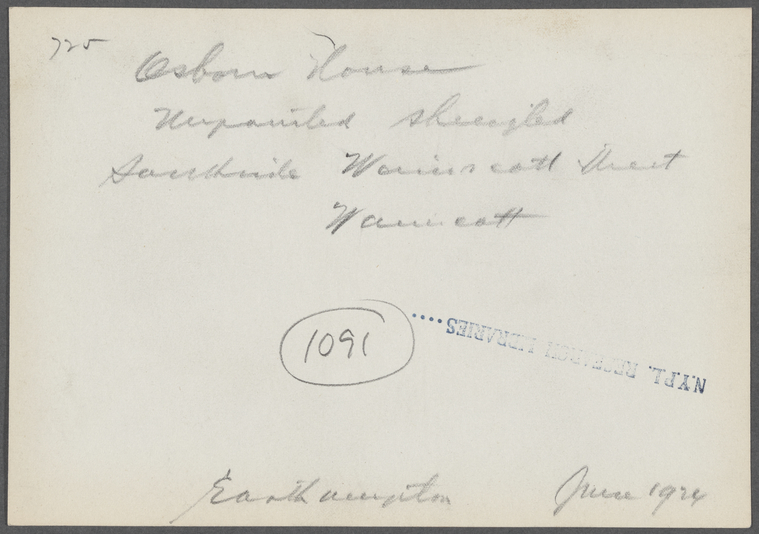 725
Osborn House
Unpainted shingled
Southside Wainscott Street
Wainscott
1091
N.Y.P.L. RESEARCH LIBRARIES....
Easthampton June 1924